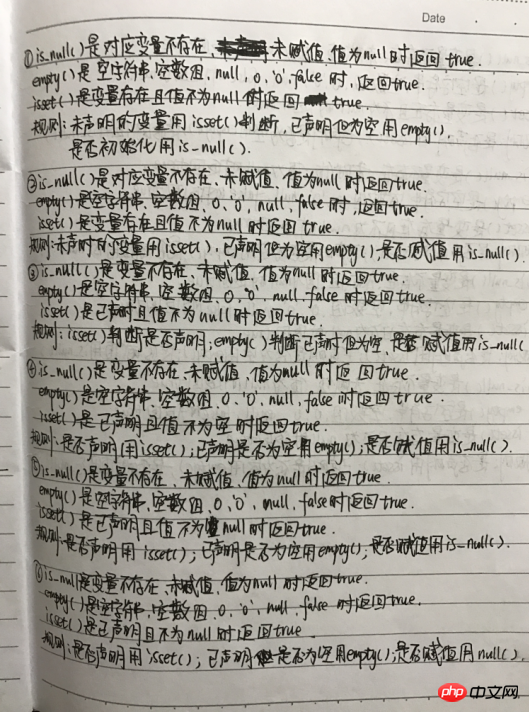 Date
①is_null()是对应变量不存在、未赋值、值为null时返回true.
empty()是空字符串,空数组,null,0,'0',false时,返回true.
isset()是变量存在且值不为null时返回true.
规则:未声明的变量用isset()判断,已声明但为空用empty(),
是否初始化用is_null().
②is_null()是对应变量不存在、未赋值、值为null时返回true.
empty()是空字符串,空数组、0、'0'、null,false时,返回true.
isset()是变量存在且值不为null时返回true.
规则:未声明的变量用isset(),已声明但为空用empty(),是否赋值用is_null().
③is_null()是变量不存在、未赋值、值为null时返回true.
empty()是空字符串,空数组、0、'0'、null、false时返回true.
isset()是已声明且值不为null时返回true.
规则:isset()判断是否声明;empty()判断已声明但为空、是否赋值用is_null
④is_null()是变量不存在、未赋值、值为null时返回true.
empty()是空字符串,空数组、0、'0'、null、false时返回true.
isset()是已声明且值不为空时返回true.
规则:是否声明用isset();已声明是否为空用empty();是否赋值用is_null().
⑤is_null()是变量不存在、未赋值,值为null时返回true.
empty()是空字符串,空数组,0,'0',null,false时返回true.
isset()是已声明且值不为null时返回true.
规则:是否声明用isset();已声明是否为空用empty();是否赋值用is_null().
⑥is_null是变量不存在、未赋值、值为null时返回true.
empty()是空字符串,空数组、0、'0'、null、false时返回true.
isset()是已声明且不为null时返回true.
规则:是否声明用isset();已声明是否为空用empty();是否赋值用null().
php中文网